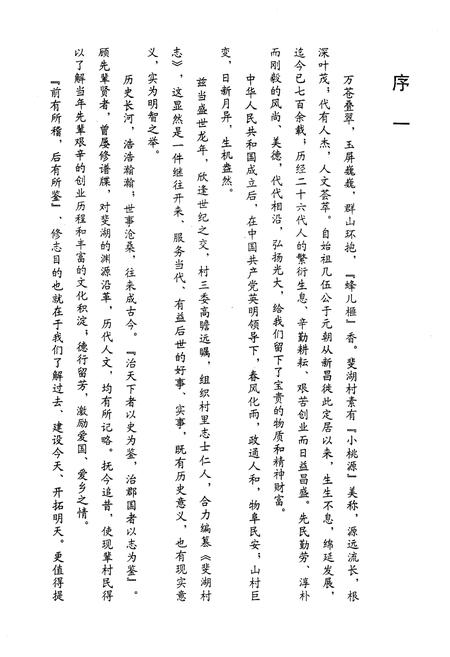 序 一
万苍叠翠，玉屏巍巍，群山环抱，『蜂儿榧』香。斐湖村素有『小桃源』美称，源远流长，根
深叶茂；代有人杰，人文荟萃。自始祖几伍公于元朝从新昌徙此定居以来，生生不息，绵延发展，
迄今已七百余载；历经二十六代人的繁衍生息、辛勤耕耘、艰苦创业而日益昌盛。先民勤劳、淳朴
而刚毅的风尚、美德，代代相沿，弘扬光大，给我们留下了宝贵的物质和精神财富。
中华人民共和国成立后，在中国共产党英明领导下，春风化雨，政通人和，物阜民安；山村巨
变，日新月异，生机盎然。
兹当盛世龙年，欣逢世纪之交，村三委高瞻远瞩，组织村里志士仁人，合力编纂《斐湖村
志》，这显然是一件继往开来、服务当代、有益后世的好事、实事，既有历史意义，也有现实意
义，实为明智之举。
历史长河，浩浩瀚瀚；世事沧桑，往来成古今。『治天下者以史为鉴，治郡国者以志为鉴』。
顾先辈贤者，曾屡修谱牒，对斐湖的渊源沿革，历代人文，均有所记略。抚今追昔，使现辈村民得
以了解当年先辈艰辛的创业历程和丰富的文化积淀；德行留芳，激励爱国、爱乡之情。
『前有所稽，后有所鉴』、修志目的也就在于我们了解过去、建设今天、开拓明天。更值得提